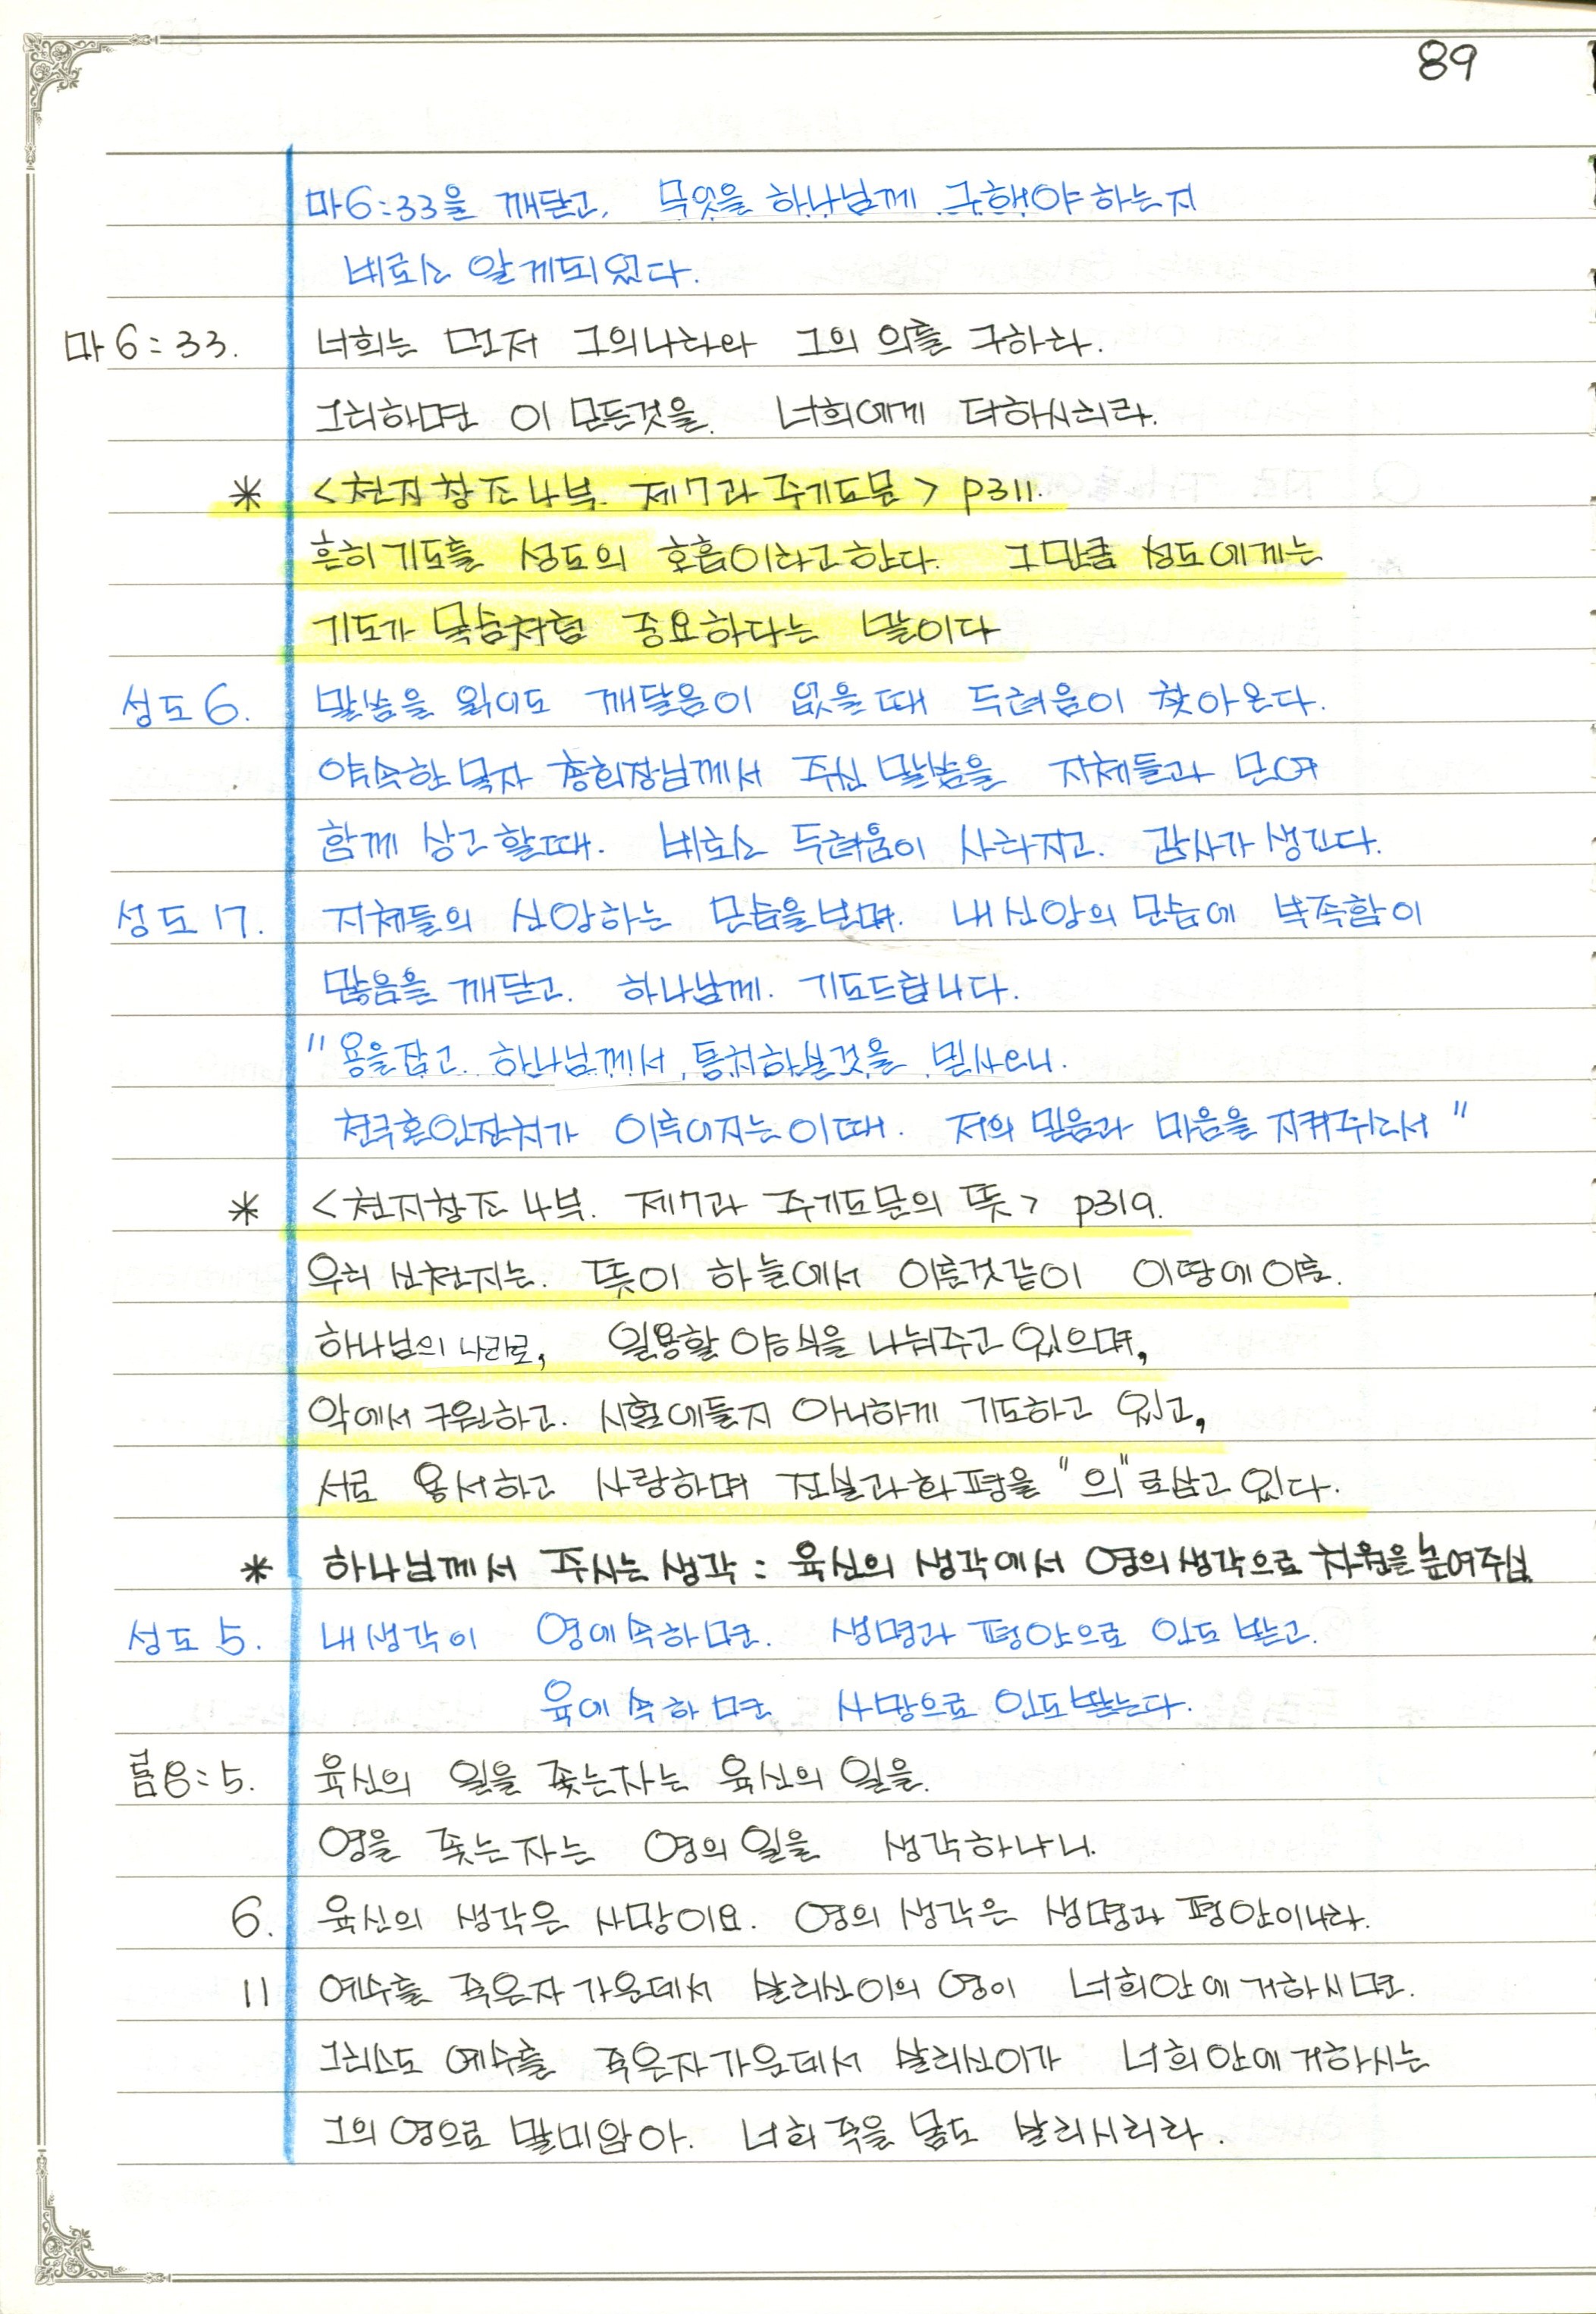 89
마6:33을 깨닫고, 무엇을 하나님께 구해야하는지
비로소 알게되었다.
마6:33. 너희는 먼저 그의나라와 그의 의를 구하라.
그리하면 이 모든것을 너희에게 더하시리라.
* <천지창조 4부. 제7과 주기도문> p311.
흔히 기도를 성도의 호흡이라고한다. 그만큼 성도에게는
기도가 목숨처럼 중요하다는 말이다
성도6. 말씀을 읽어도 깨달음이 없을때 두려움이 찾아온다.
약속한 목자 총회장님께서 주신 말씀을 지체들과 모여
함께 상고 할때. 비로소 두려움이 사라지고. 감사가 생긴다.
성도17. 지체들의 신앙하는 모습을보며. 내신앙의 모습에 부족함이
많음을 깨닫고. 하나님께. 기도드립니다.
"용을잡고. 하나님께서, 통치하실것을, 믿사오니.
천국혼인잔치가 이루어지는이때. 저의 믿음과 마음을 지켜주라서"
* <천지창조 4부. 제7과 주기도문의 뜻> p319.
우리 신천지는. 뜻이 하늘에서 이룬것같이 이땅에이룬.
하나님의 나라로, 일용할 양식을 나눠주고 있으며,
악에서 구원하고. 시험에들지 아니하게 기도하고 있고,
서로 용서하고 사랑하며 진실과화평을 "의"로삼고 있다.
* 하나님께서 주시는생각: 육신의 생각에서 영의생각으로 차원을높여주심.
성도5. 내생각이 영에속하면. 생명과 평안으로 인도 받고.
육에 속하면 사망으로 인도받는다.
롬8:5. 육신의 일을 좇는자는 육신의 일을.
영을 좇는자는 영의일을 생각하나니.
6. 육신의 생각은 사망이요. 영의 생각은 생명과 평안이니라.
11 예수를 죽은자가운데서 살리신이의 영이 너희안에거하시면.
그리스도 예수를 죽은자가운데서 살리신이가 너희안에거하시는
그의영으로 말미암아. 너희죽을 몸도 살리시리라.